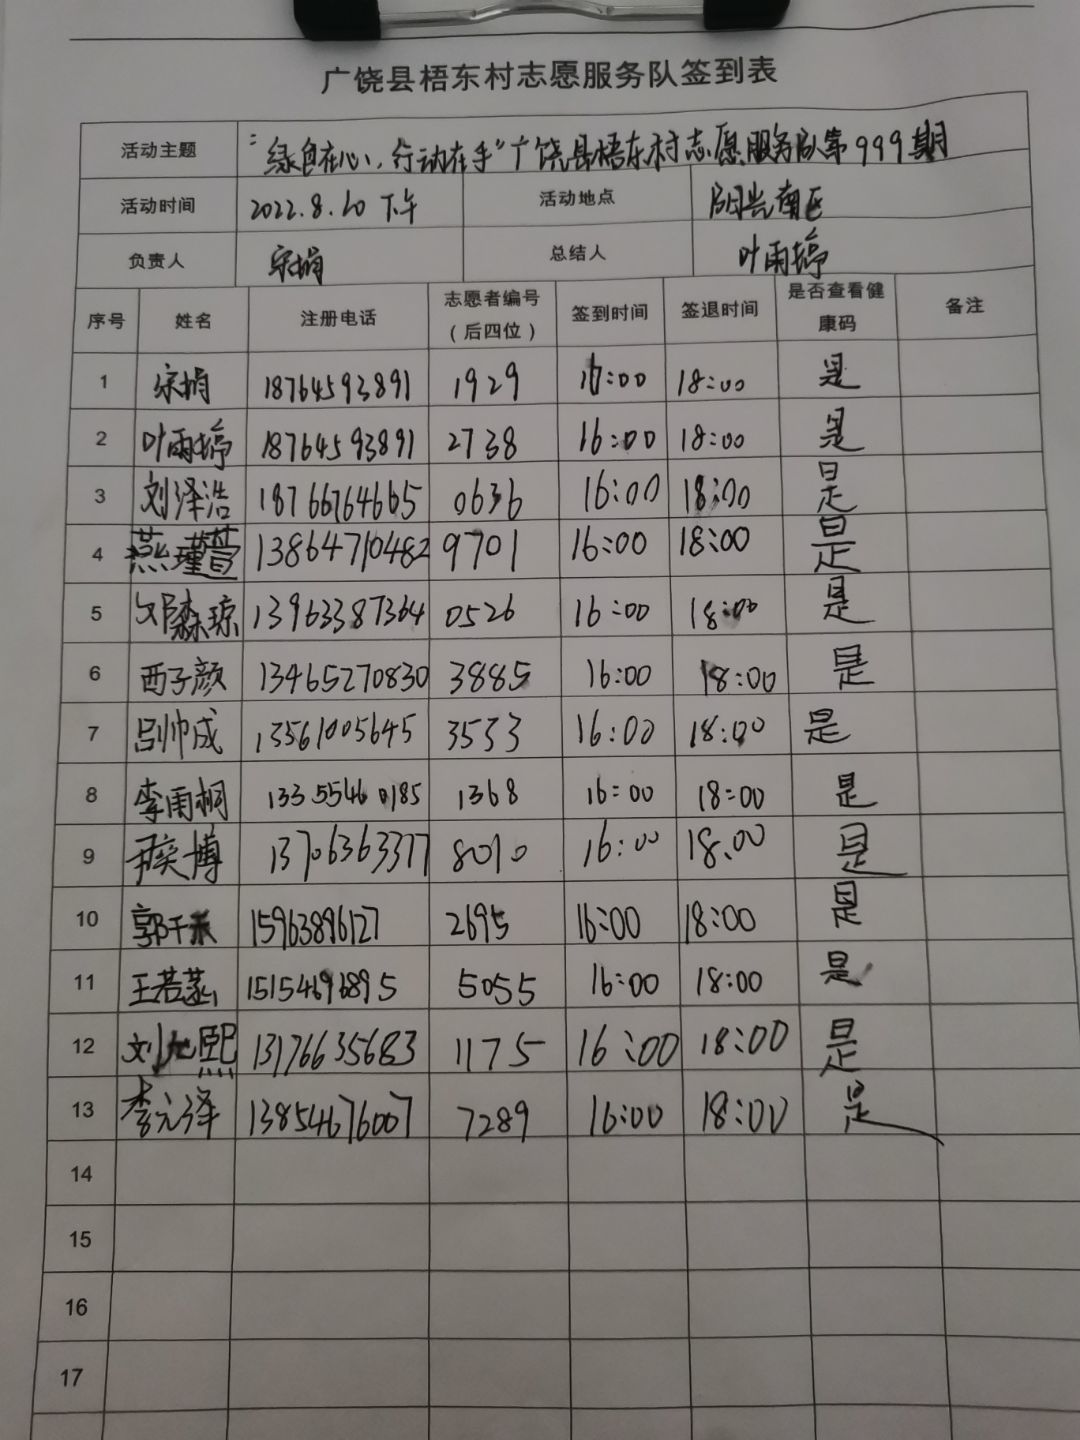 广饶县梧东村志愿服务队签到表
活动主题 "绿色在心,行动在手"广饶县梧东村志愿服务队第999期
活动时间 2022.8.20 下午 活动地点 阳光南区
负责人 宋娟 总结人 叶雨婷
序号 姓名 注册电话 志愿者编号(后四位) 签到时间 签退时间 是否查看健康码 备注
1 宋娟 18764593891 1929 16:00 18:00 是
2 叶雨婷 18764593891 2738 16:00 18:00 是
3 刘泽浩 18766764665 0636 16:00 18:00 是
4 燕瑾萱 13864710482 9701 16:00 18:00 是
5 邓森琼 13963387364 0526 16:00 18:00 是
6 西子颜 13465270830 3885 16:00 18:00 是
7 吕帅成 13561005645 3533 16:00 18:00 是
8 李雨桐 13355460185 1368 16:00 18:00 是
9 奕博 13706363377 8010 16:00 18:00 是
10 郭千 15963896127 2695 16:00 18:00 是
11 王若菡 15154696895 5055 16:00 18:00 是
12 刘熙 13176635683 1175 16:00 18:00 是
13 李元泽 13854676007 7289 16:00 18:00 是
14
15
16
17